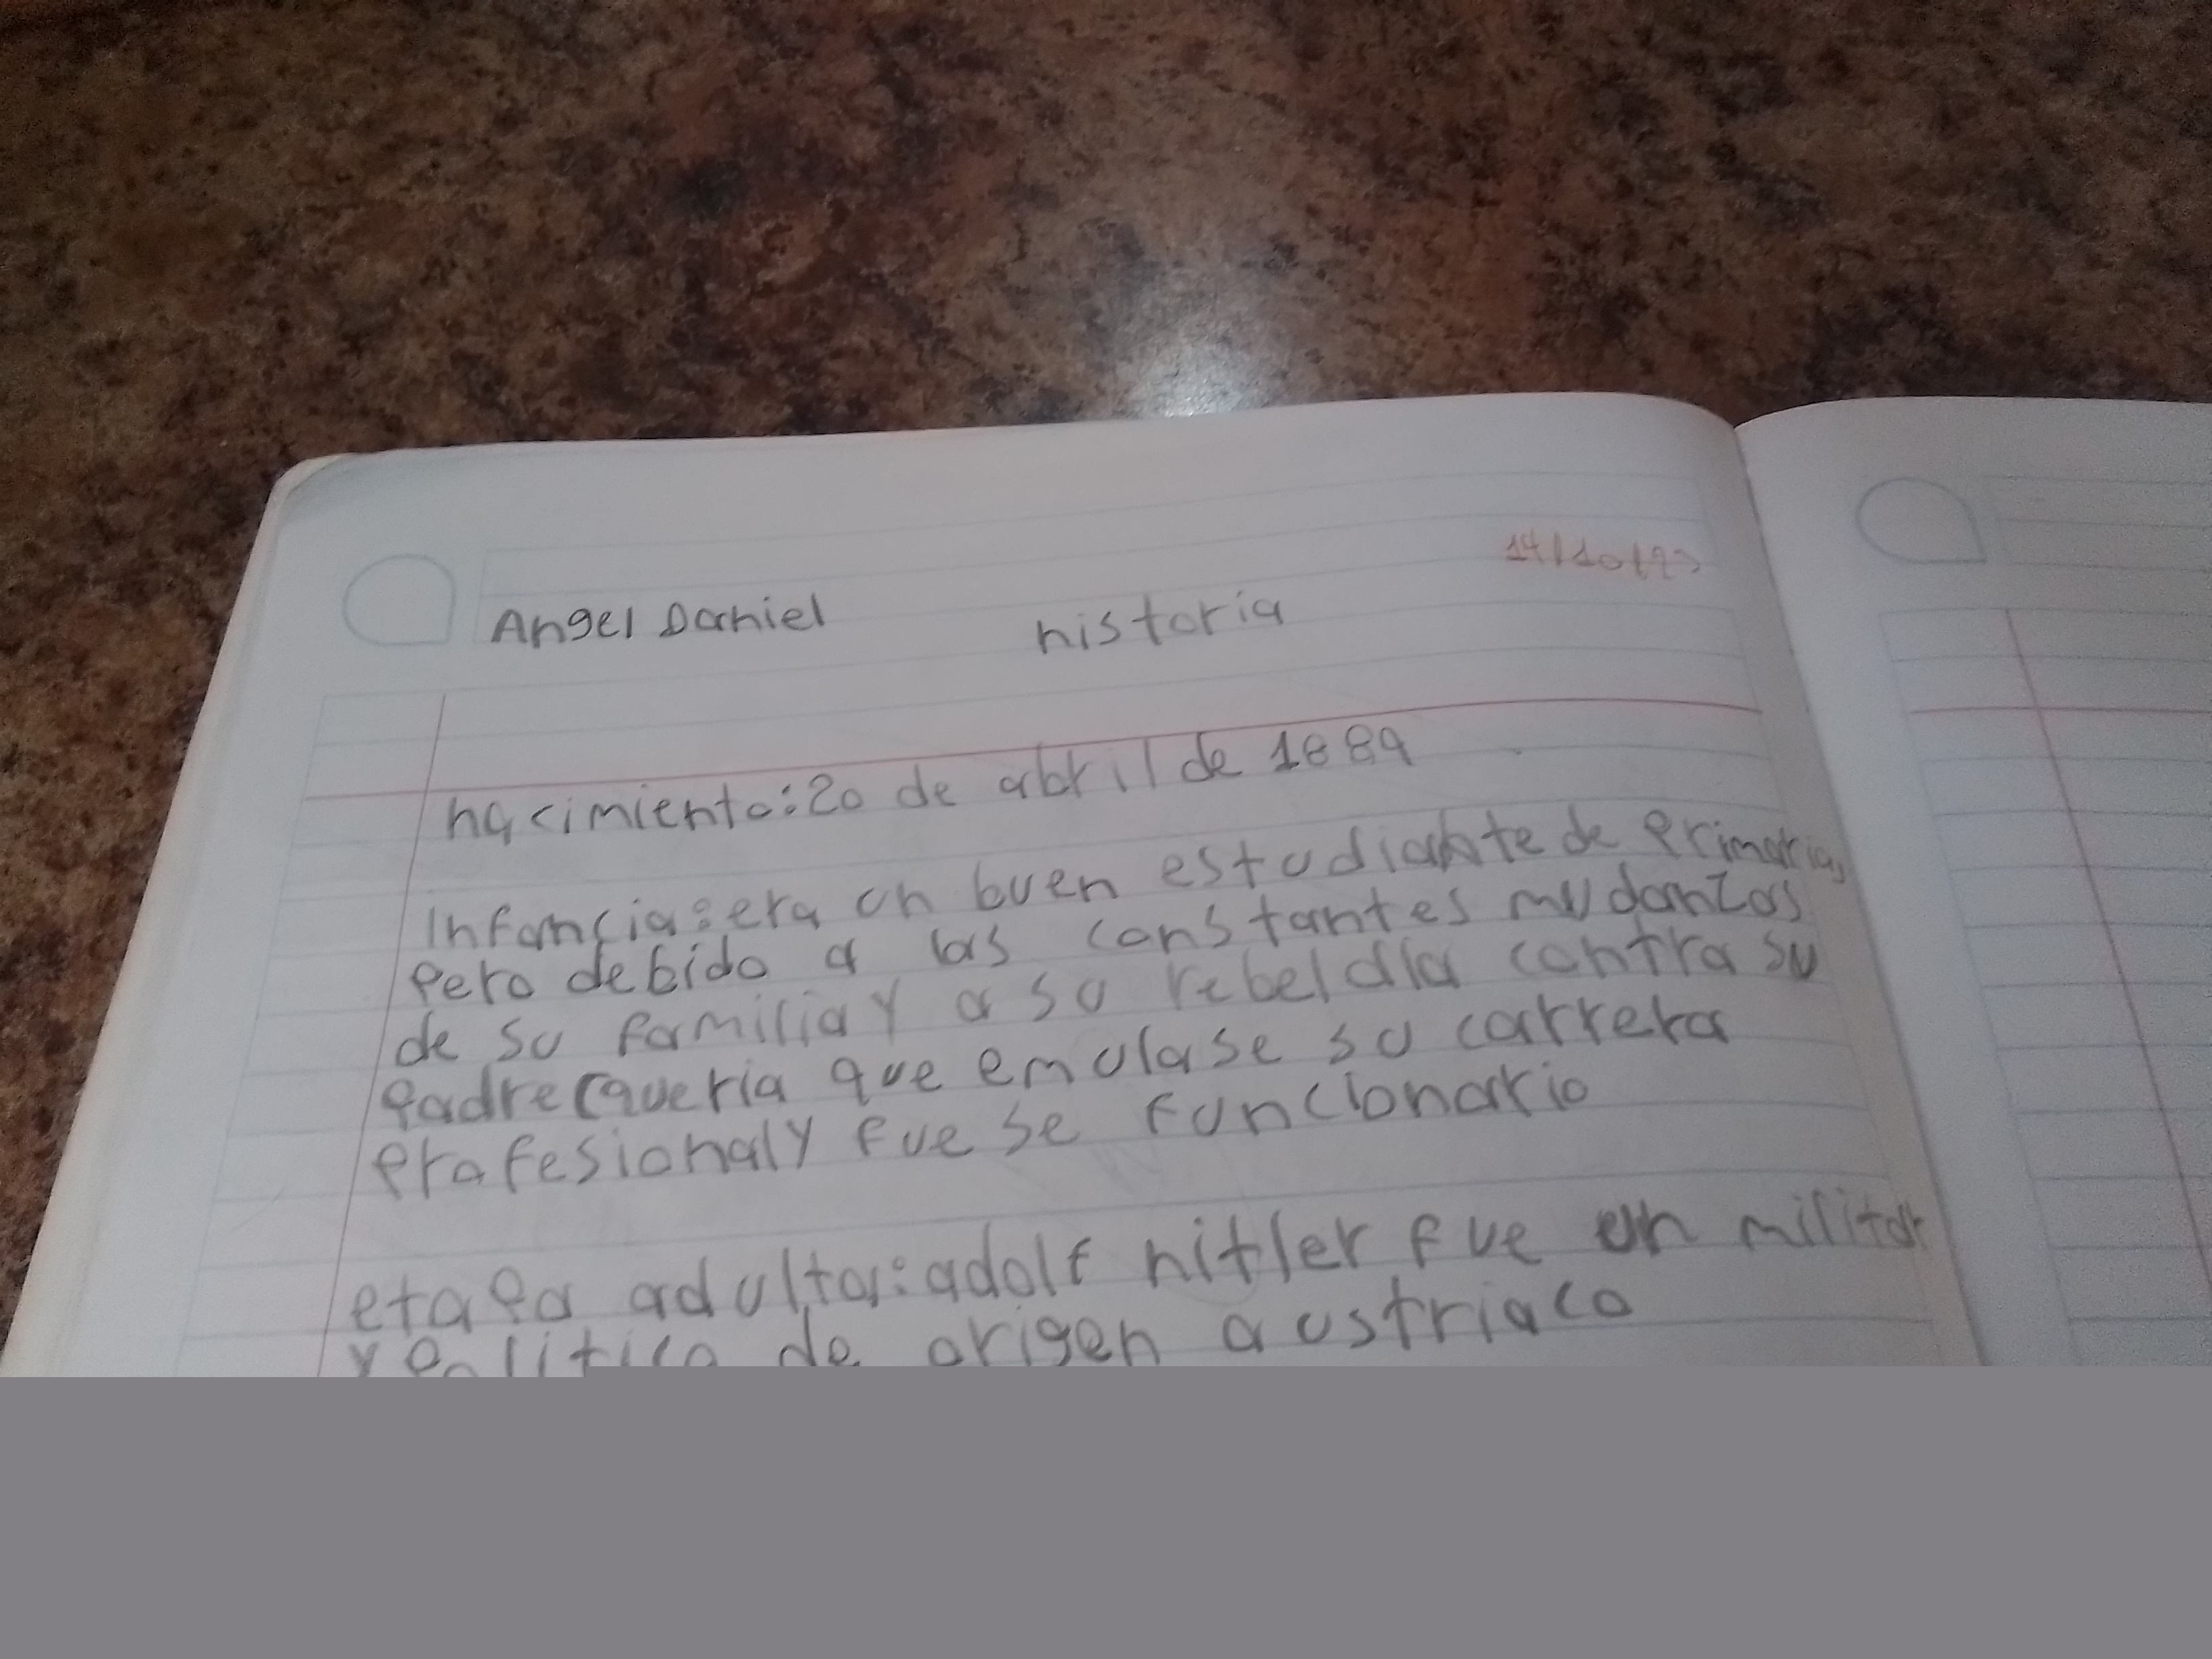 14/10/23
Angel Daniel historia
nacimiento:20 de abril de 1889
Infancia:era un buen estudiante de primaria,
pero debido a las constantes mudanzas
de su familia y a su rebeldía contra su
padre (quería que emulase su carrera
profesional y fuese funcionario
etapa adulta:adolf hitler fue un militar
y político de origen austriaco